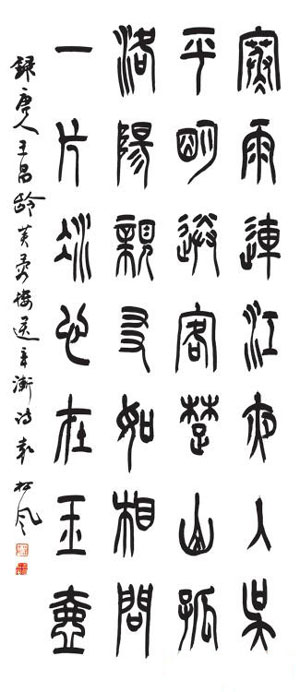 寒雨連江夜入吴
平明送客楚山孤
洛陽親友如相問
一片冰心在玉壺
録唐人王昌齡芙蓉樓送辛漸詩 松風